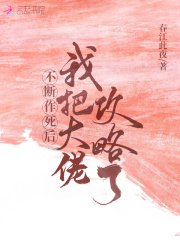 春江此夜◎著
不断作死后
我把大佬
攻略了